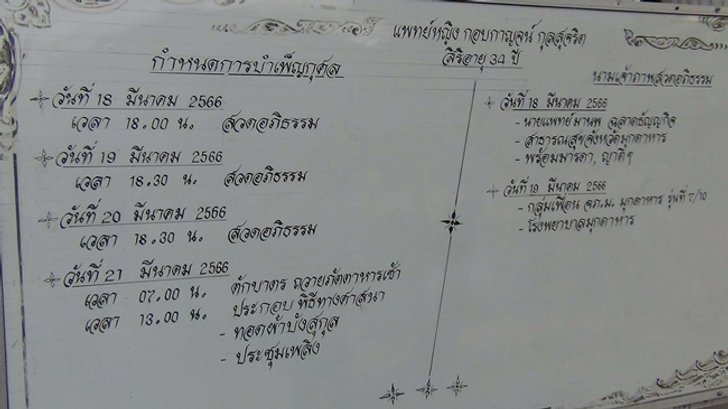 แพทย์หญิง กอบกาญจน์ กุลสุจริต
สิริอายุ 34 ปี
กำหนดการบำเพ็ญกุศล
วันที่ 18 มีนาคม 2566
เวลา 18.00 น. สวดอภิธรรม
วันที่ 19 มีนาคม 2566
เวลา 18.30 น. สวดอภิธรรม
วันที่ 20 มีนาคม 2566
เวลา 18.30 น. สวดอภิธรรม
วันที่ 21 มีนาคม 2566
เวลา 07.00 น. ตักบาตร ถวายภัตตาหารเช้า
เวลา 13.00 น. ประกอบ พิธีทางศาสนา
- ทอดผ้าบังสุกุล
- ประชุมเพลิง
นามเจ้าภาพสวดอภิธรรม
วันที่ 18 มีนาคม 2566
- นายแพทย์มานพ ฉลาดธัญญกิจ
- สาธารณสุขจังหวัดมุกดาหาร
- พร้อมมารดา, ญาติๆ
วันที่ 19 มีนาคม 2566
- กลุ่มเพื่อน จภ.ม. มุกดาหาร รุ่นที่ 7/10
- โรงพยาบาลมุกดาหาร